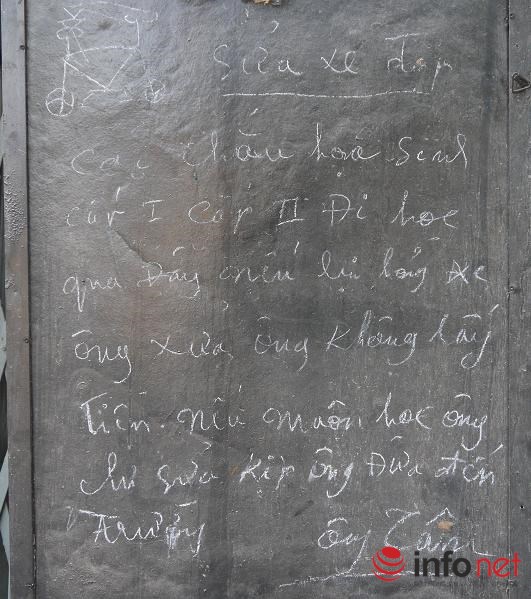 Sửa xe đạp
Các cháu học sinh
cấp I cấp II Đi học
qua Đấy nếu bị hỏng xe
ông xưả ông không lấy
Tiền nếu muộn học ông
chư sửa kịp ông Đưa đến
Trường ông Tâm
infonet